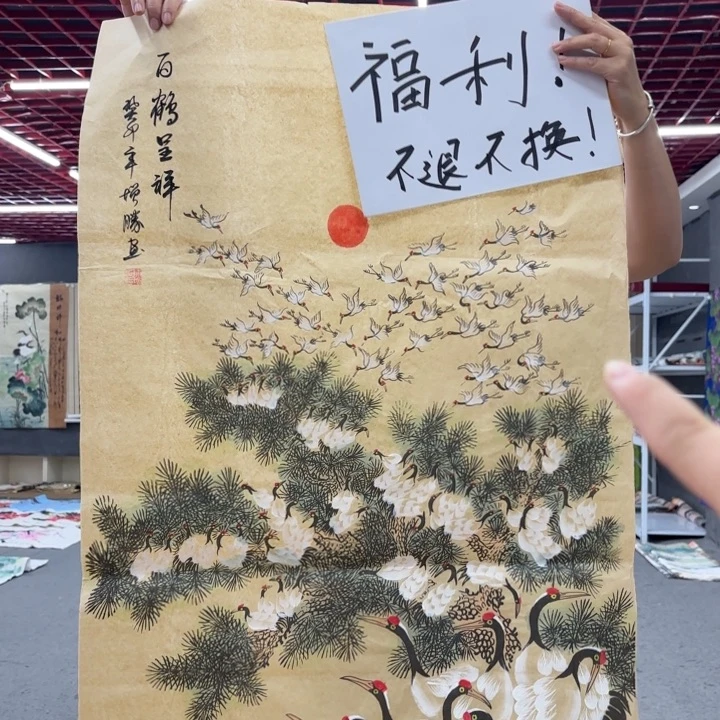 福利！
不退不换！
百鹤呈祥
癸卯年增勝画